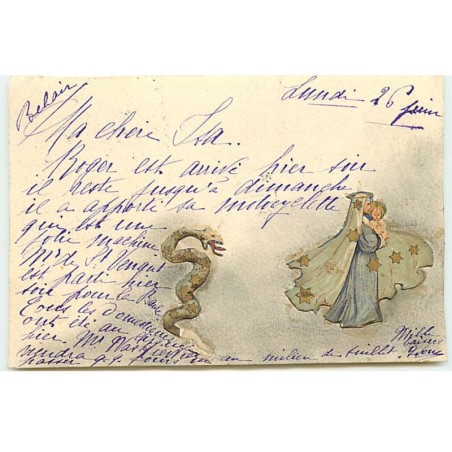 Belair
Lundi 26 juin
Ma chère Isa.
Roger est arrivé hier soir
il reste jusqu'à dimanche
il a apporté sa motocyclette
qui est une
jolie machine
Mr de St
est parti hier
soir pour la
Tous les domestiques
ont été au
hier. Mr
viendra
passer q.q. jours au milieu de Juillet.
Mille
baisers